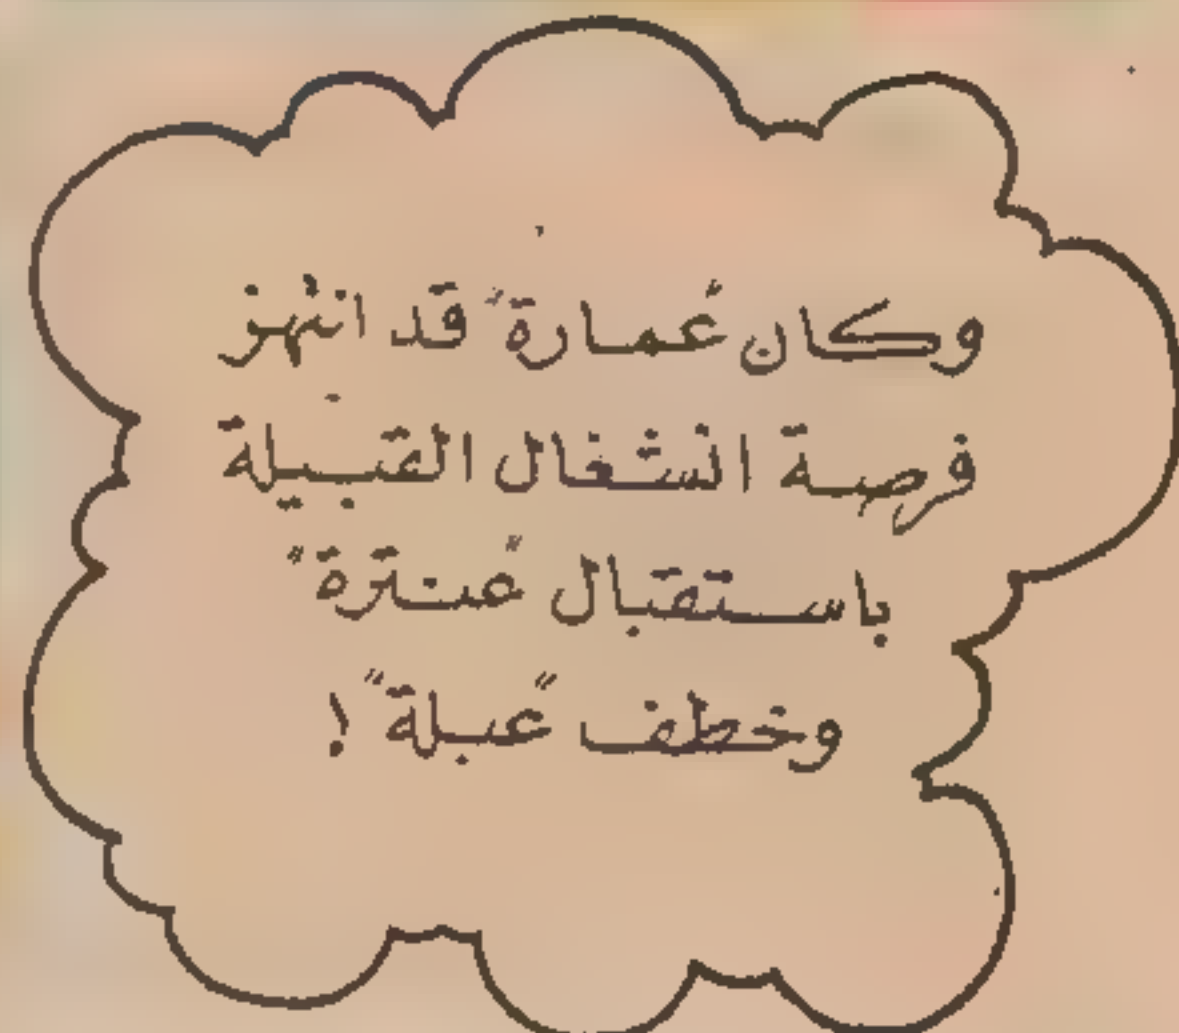 وكان "عمارة" قد انتهز
فرصة انشغال القبيلة
باستقبال "عنترة"
وخطف "عبلة" !